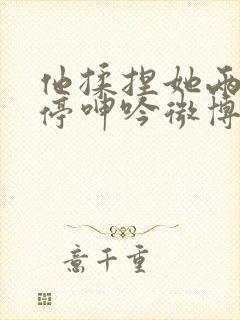 他揉捏她两
停呻吟微博
意千重